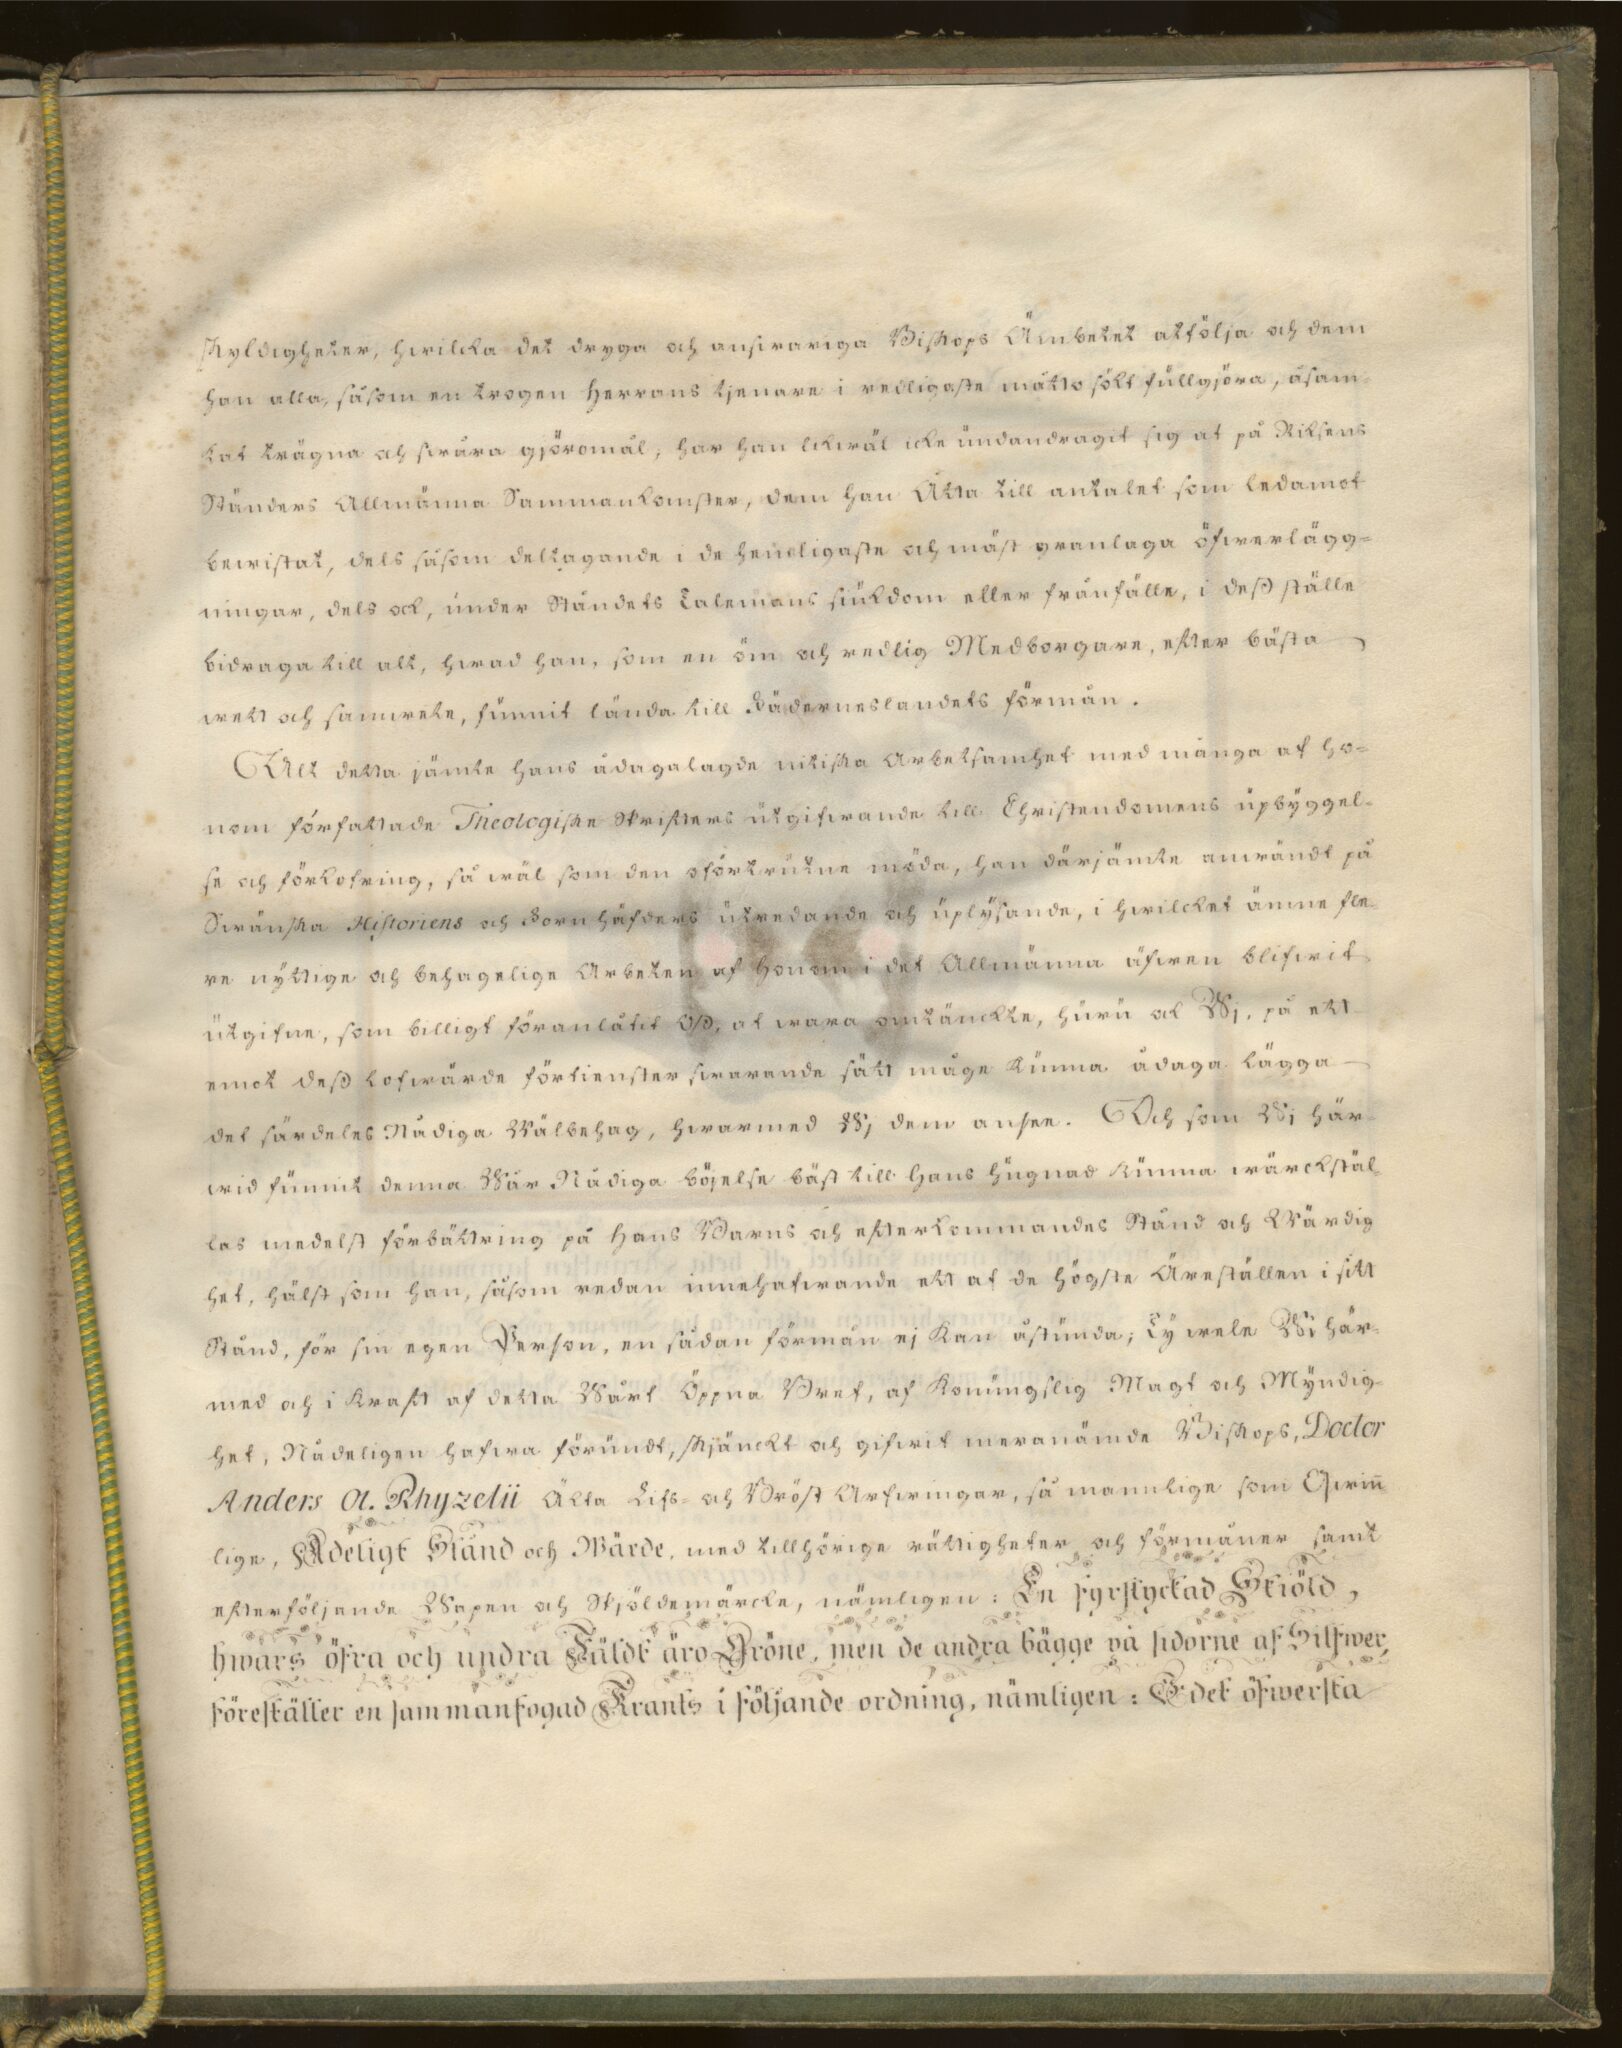 skyldigheter, hwilcka det dryga och answariga Biskops Ämbetet atfölja och dem
han alla, såsom en trogen Herrans tjenare i redligaste måtto sökt fullgjöra, åsam-
kat trägna och swåra gjöromål, har han lickwäl icke undandragit sig at på Riksens
Ständers Allmänna Sammankomster, dem han Åtta till antalet som ledamot
bewistat, dels såsom deltagande i de hemligaste och mäst granlaga öfwerlägg-
ningar, dels ock, under Ståndets Talemans siukdom eller frånfälle, i dess ställe
bidraga till alt, hwad han, som en öm och redlig Medborgare, efter bästa
wett och samwete, funnit lända till Fäderneslandets förmån.
Alt detta jämte hans ådagalagde nitiska Arbetsamhet med många af ho-
nom författade Theologiske Skrifters utgifwande till Christendomens upbyggel-
se och förkofring, så wäl som den oförtrutne möda, han därjämte anwändt på
Swänska Historiens och Fornhäfders utredande och uplysande, i hwilcket ämne fle-
re nyttige och behagelige Arbeten af honom i det Allmänna äfwen blifwit
utgifne, som billigt föranlåtit Oss, at wara omtänckte, huru ock Wj, på ett
emot dess lofwärde förtienster swarande sätt måge kunna ådaga lägga
det särdeles Nådiga Wälbehag, hwarmed Wj dem ansee. Och som Wj här-
wid funnit denna Wår Nådiga böjelse bäst till Hans hugnad kunna wärckstäl-
las medelst förbättring på Hans Barns och efterkommandes Stånd och Wärdig
het, hälst som han, såsom redan innehafwande ett af de högste Äreställen i sitt
Stånd, för sin egen Person, en sådan förmån ej kan åstunda; Ty wele Wi här-
med och i kraft af detta Wårt Öppna Bref, af Konungslig Magt och Myndig-
het, Nådeligen hafwa förundt, skjänckt och gifwit meranämde Biskops, Doctor
Anders O. Rhyzelii Äkta Lifs- och Bröst Arfwingar, så mannlige som Qwin̅
lige, Adeligt Stånd och Wärde, med tillhörige rättigheter och förmåner samt
efterföljande Wapen och Skjöldemärcke, nämligen: En fyrstyckad Skiöld,
hwars öfra och undra Fäldt äro Gröne, men de andra bägge på sidorne af Silfwer,
föreställer en sammanfogad Krants i följande ordning, nämligen: I det öfwersta